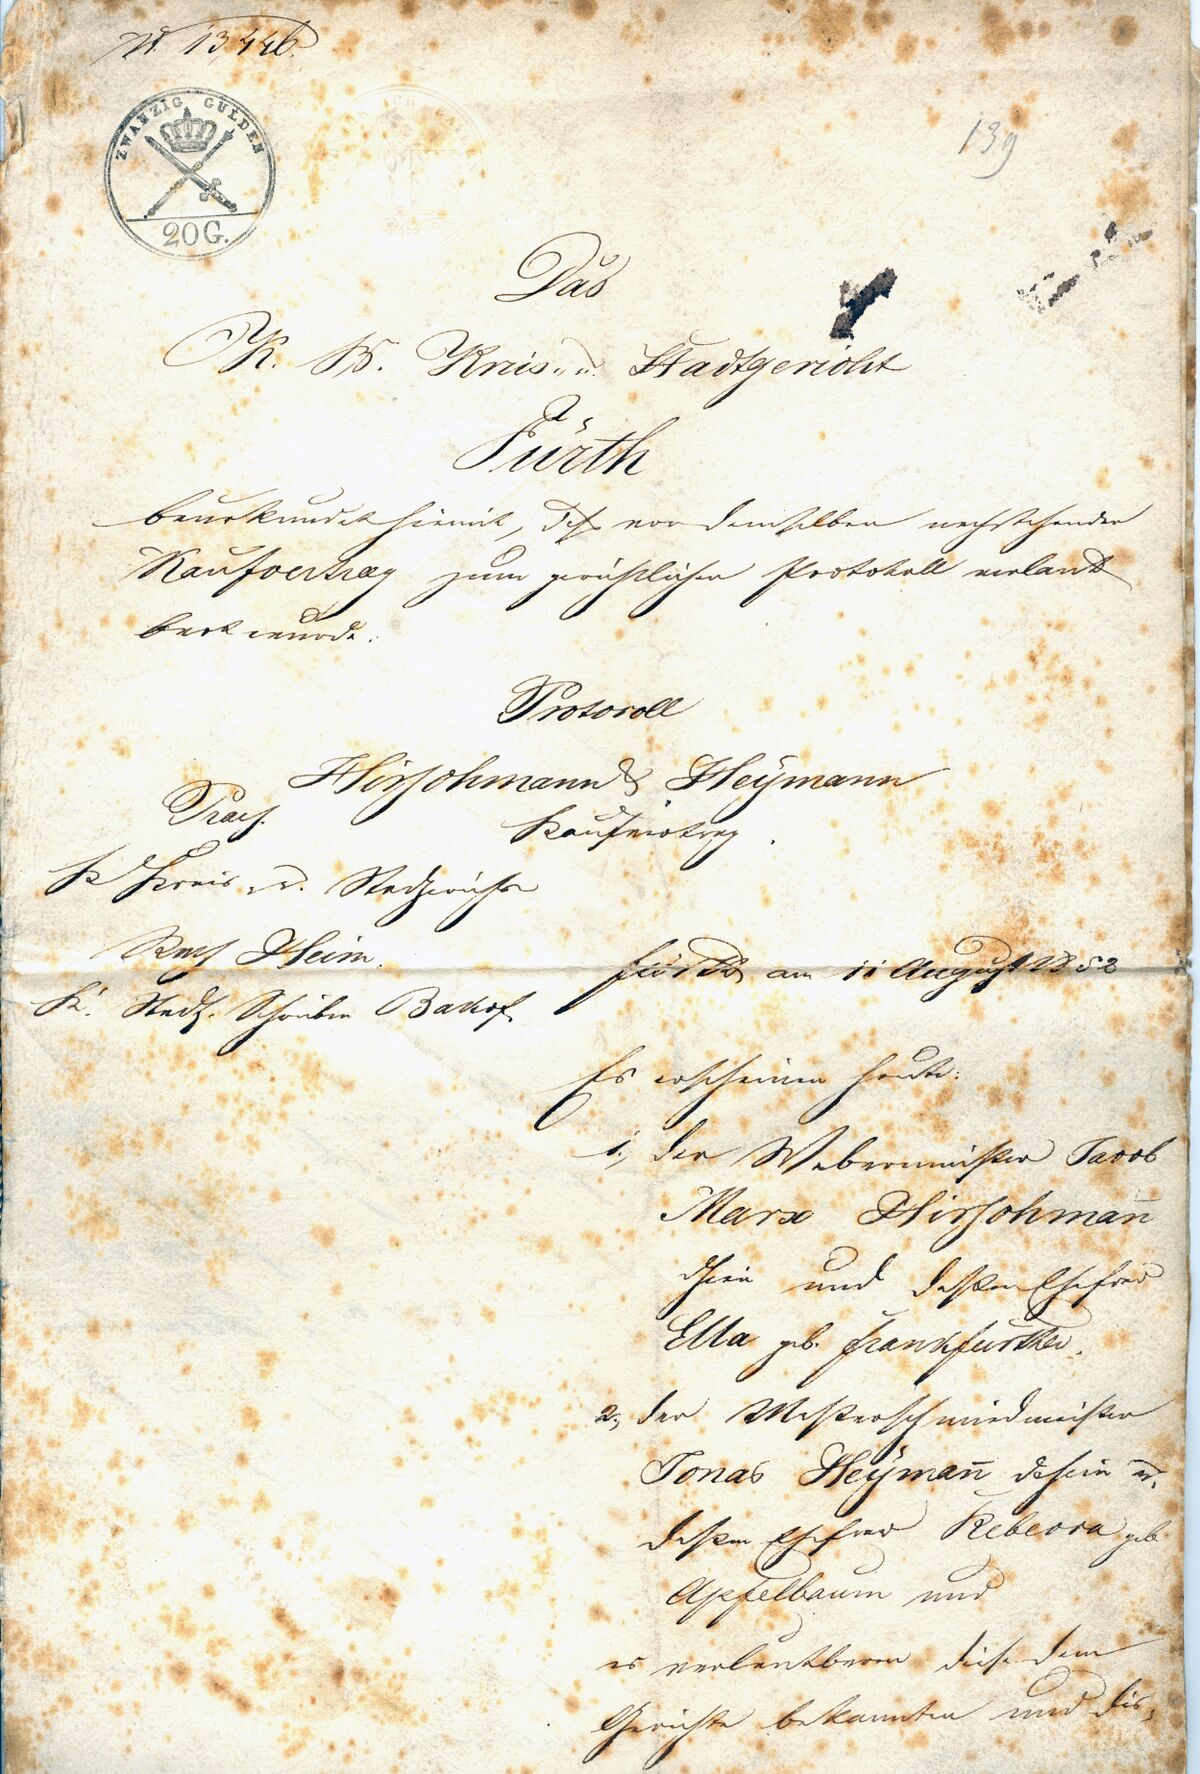 N. 13,446.
ZWANZIG GULDEN
20 G.
139
Das
K. B. Kreis- u. Stadtgericht
Fürth
beurkundet hiemit, daß vor demselben nachstehender
Kaufvertrag zum gerichtlichen Protokoll verlaut
bart wurde.
Protocoll
Hirschmann & Heÿmann
Praes.
Kaufvertrag.
K. Kreis- u. Stadtgerichts
Rath Heim.
Fürth am 11 August 1852
K. Stadtg. Schreiber Backof
Es erscheinen heute:
1., der Webermeister Jacob
Marx Hirschmañ
dahier und dessen Ehefrau
Ella geb. Frankfurther.
2., der Messerschmiedmeister
Jonas Heÿmañ dahier u.
dessen Ehefrau Rebecca geb
Apfelbaum und
es verlautbaren diese dem
Gerichte bekannten und dis-